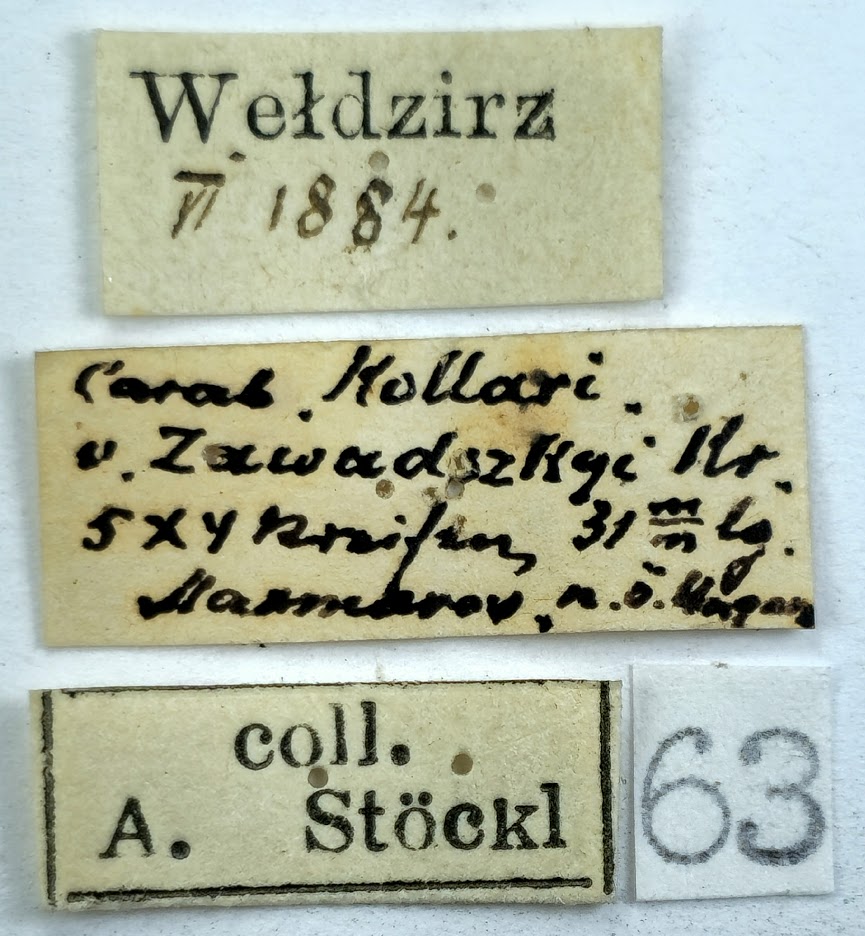 Wełdzirz
VI 1884.
Carab. Kollari.
v. Zawadszkyi Kr.
5 X 4 Streifen, 31 m/m lg.
Marmaros, n. ö. Ungarn
coll.
A. Stöckl
63